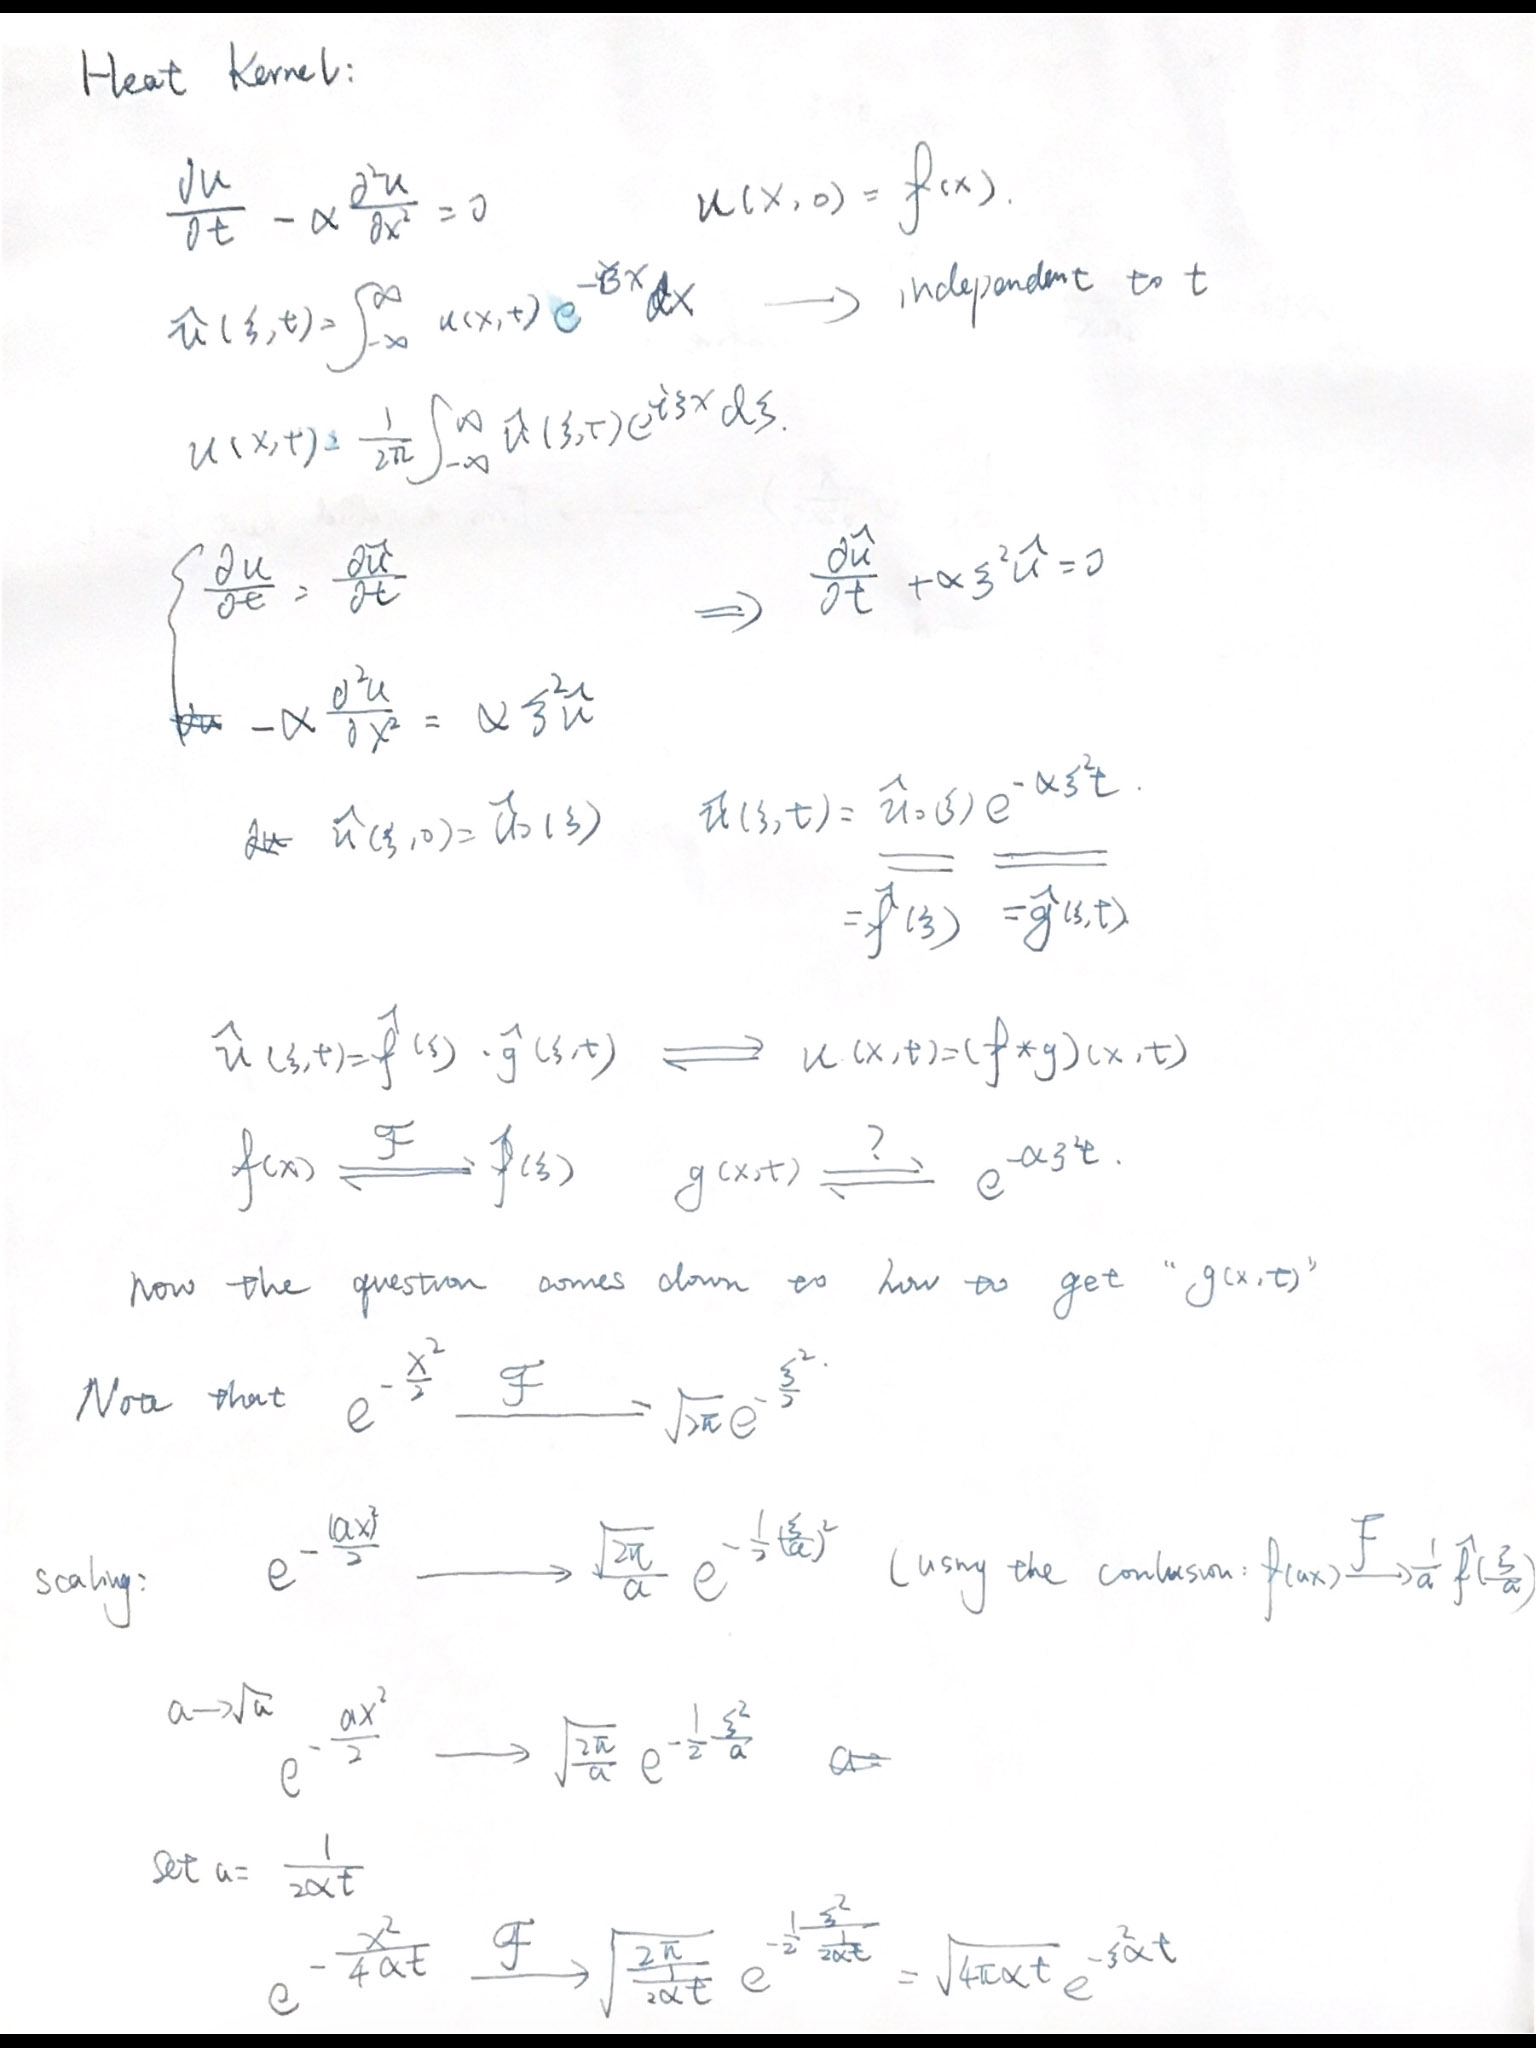 Heat Kernel:
∂u/∂t - α ∂²u/∂x² = 0    u(x,0) = f(x).
û(ξ,t) = ∫_{-∞}^{∞} u(x,t) e^{-iξx} dx ⟶ independent to t
u(x,t) = 1/2π ∫_{-∞}^{∞} û(ξ,t) e^{iξx} dξ.
{ ∂u/∂t = ∂û/∂t    ⟹ ∂û/∂t + αξ²û = 0
-α ∂²u/∂x² = αξ²û
û(ξ,0) = û₀(ξ)    û(ξ,t) = û₀(ξ) e^{-αξ²t}.
= f̂(ξ)    = ĝ(ξ,t)
û(ξ,t) = f̂(ξ) · ĝ(ξ,t) ⇌ u(x,t) = (f * g)(x,t)
f(x) ⇌^{F} f̂(ξ)    g(x,t) ⇌^{?} e^{-αξ²t}.
now the question comes down to how to get "g(x,t)"
Note that e^{-x²/2} —^{F}— √2π e^{-ξ²/2}.
scaling: e^{-(ax)²/2} ⟶ √2π/a e^{-1/2 (ξ/a)²} (using the conlusion: f(ax) ⟶^{F} 1/a f̂(ξ/a)
a→√a e^{-ax²/2} ⟶ √(2π/a) e^{-1/2 ξ²/a}
set a = 1/2αt
e^{-x²/4αt} ⟶^{F} √(2π/(1/2αt)) e^{-1/2 ξ²/(1/2αt)} = √(4παt) e^{-ξ²αt}